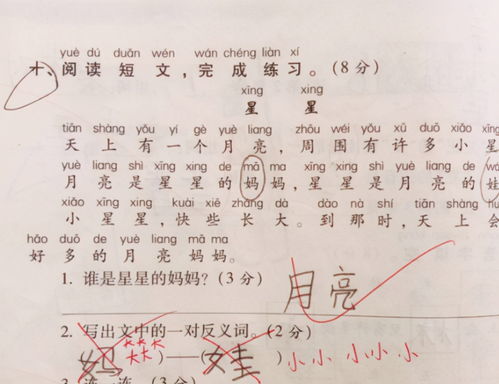 yuè dú duǎn wén wán chéng liàn xí
十、阅读短文,完成练习。(8分)
xīng xing
星 星
tiān shàng yǒu yí gè yuè liang zhōu wéi yǒu xǔ duō xiǎo xīng
天上有一个月亮,周围有许多小星
yuè liang shì xīng xing de mā ma xīng xing shì yuè liang de wá
月亮是星星的妈妈,星星是月亮的娃
xiǎo xīng xing kuài xiē zhǎng dà dào nà shí tiān shàng hu
小星星,快些长大。到那时,天上会
hǎo duō de yuè liang mā ma
好多的月亮妈妈。
1. 谁是星星的妈妈?(3分) 月亮
2. 写出文中的一对反义词。(2分)
(妈 大大 大大大)——(娃) 小小 小小小
3. 连一连。(3分)